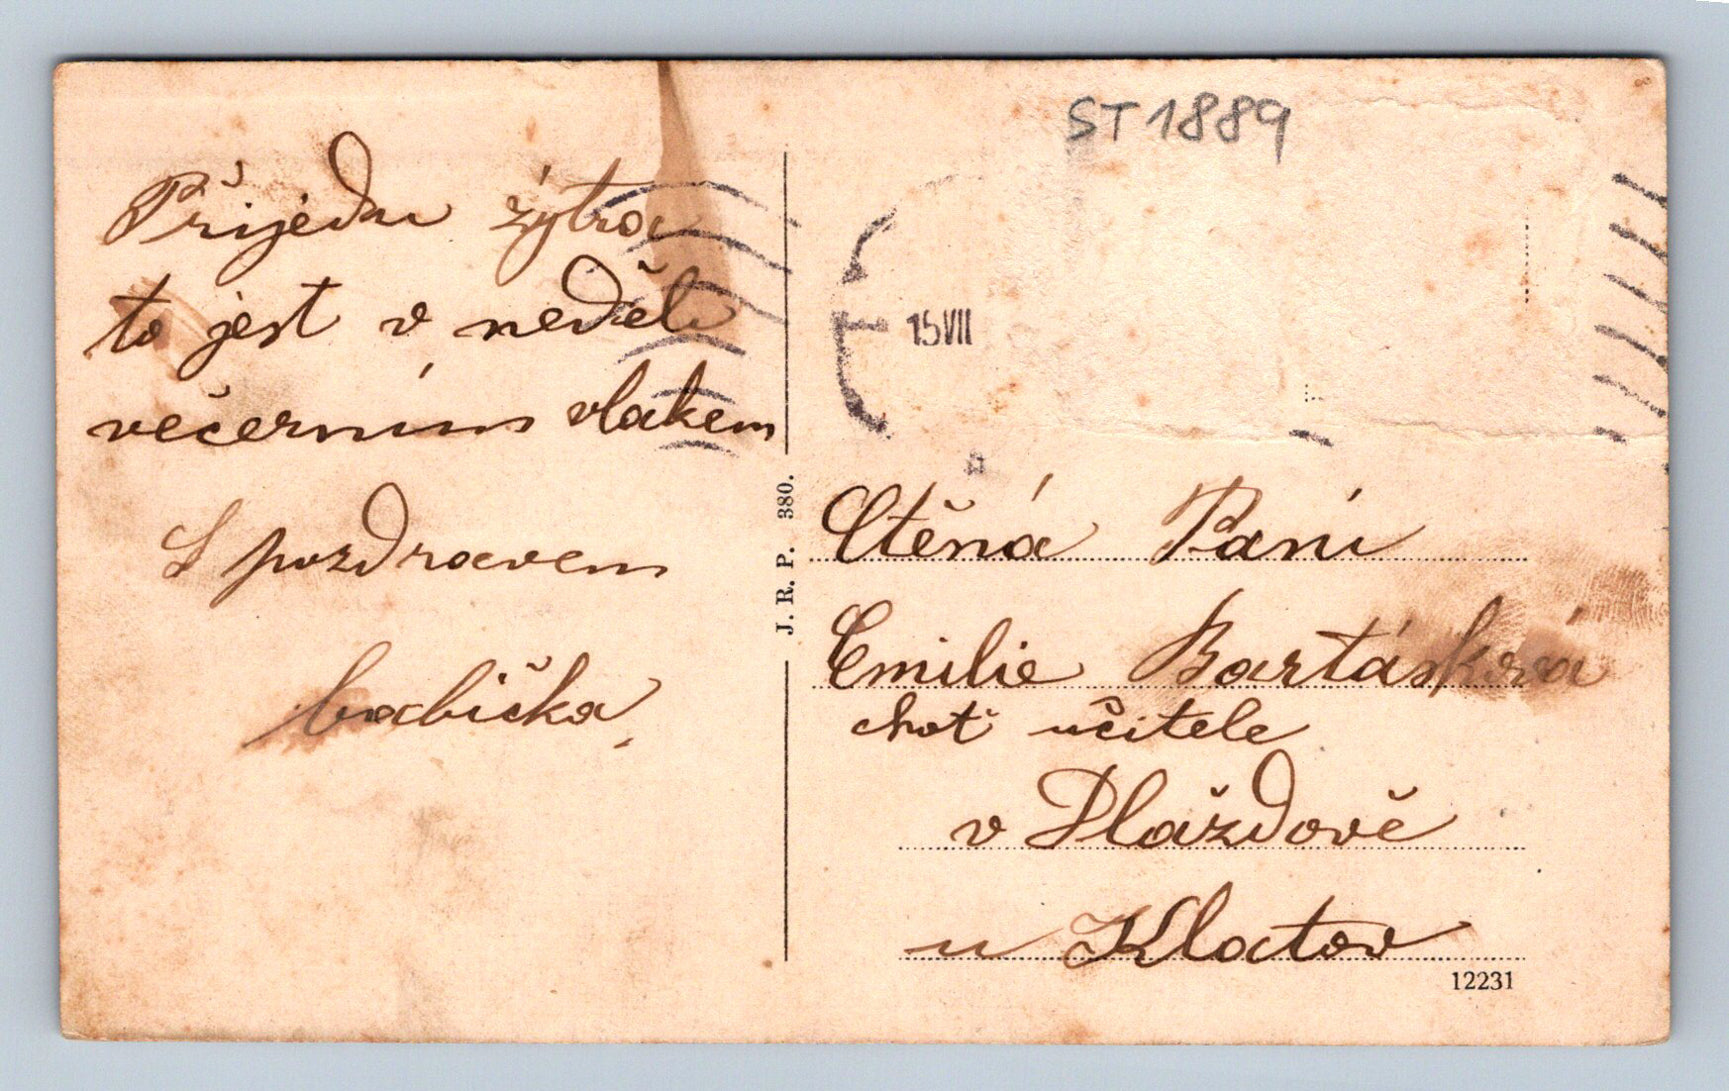 ST 1889
15 VII
Přijedu zýtra
to jest v neděli
večerním vlakem
S pozdravem
babička.
J. R. P. 380.
Ctěná Paní
Emilie Bartásková
choť učitele
v Plážďově
u Klatov
12231